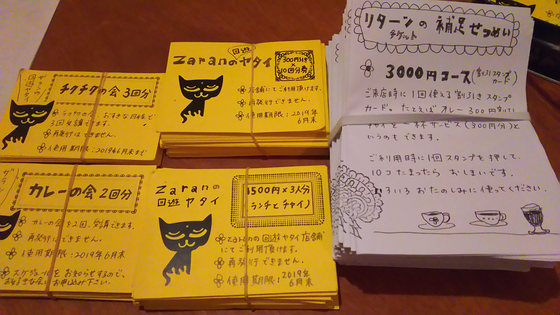 チクチクの会 3回分
お好きな日時で
3回受講できます。
再発行はできません。
使用期限:2019年6月末まで
回遊
Zaranのヤタイ
300円分
×
10回分券
店舗にてご利用頂けます。
再発行できません。
使用期限:2019年
6月末
カレーの会 2回分
カレーの会を2回、受講できます。
再発行できません。
使用期限:2019年6月末
スケジュールをお知らせするので、
お申し込み下さい。
Zaranの
回遊ヤタイ
1500円×3人分
ランチとチャイ
Zaranの回遊ヤタイ店舗
にてご利用頂けます。
再発行できません。
使用期限:2019年
6月末
リターンの補足せつめい
チケット
3000円コース(割引スタンプ
カード)
ご来店時に1回使える割引きスタンプ
カード。たとえばカレー300円
チャイを一杯サービス(300円分)と
いうのもできます。
ご利用時に1回スタンプを押して、
10コたまったらおしまいです。
いろいろおたのしみに使ってください。